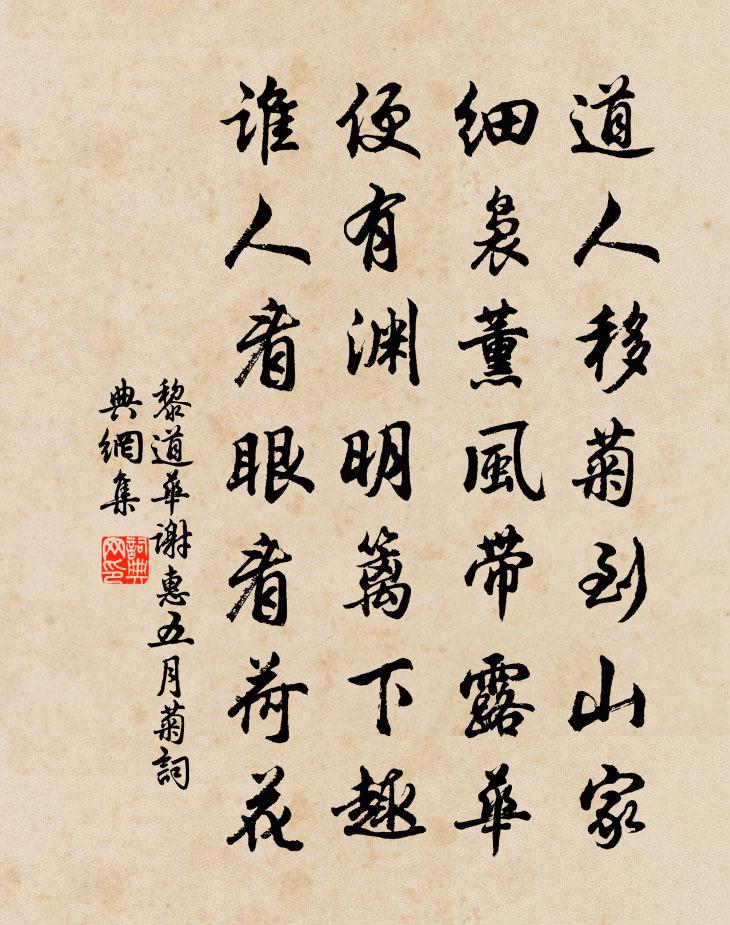 道人移菊到山家
細裊薰風帶露華
便有渊明籬下趣
谁人着眼看荷花
黎道華谢惠五月菊詞
典網集
詞典
网印